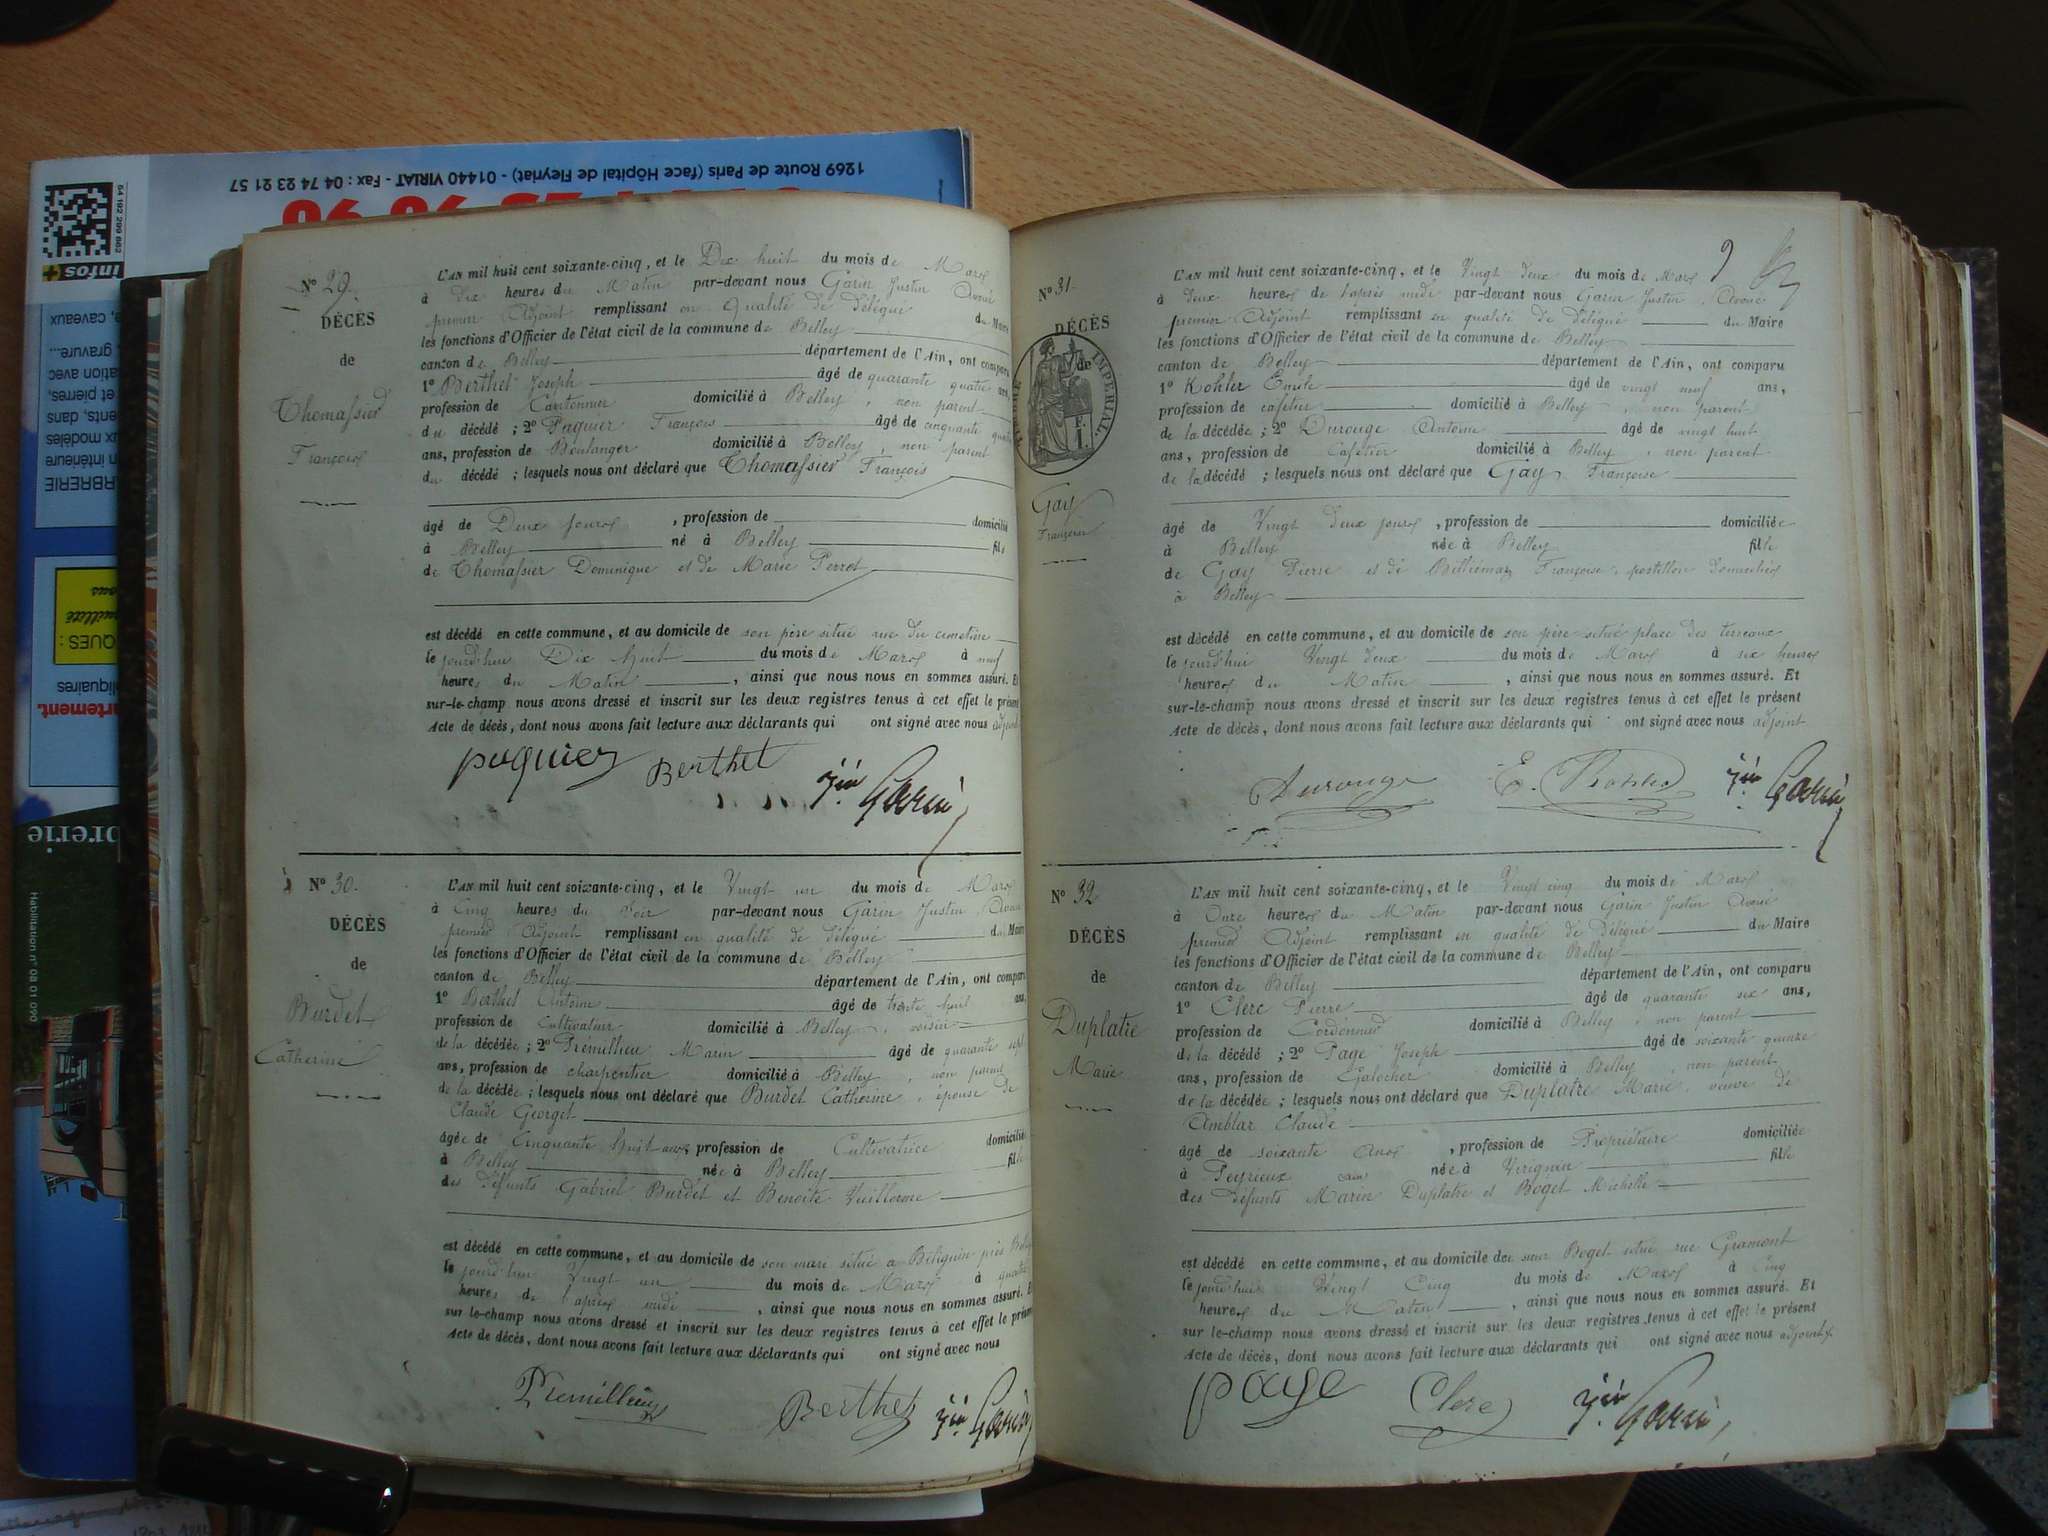 1269 Route de Paris (face Hôpital de Fleyriat) - 01440 VIRIAT - Fax : 04 74 23 21 57
64 192 299 662
infos
N° 29.
DÉCÈS
de
Thomassier
François
L'AN mil huit cent soixante-cinq, et le Dix huit du mois de Mars
à dix heures du Matin par-devant nous Garin Justin Avoué
premier Adjoint remplissant en qualité de délégué du Maire
les fonctions d'Officier de l'état civil de la commune de Belley
canton de Belley département de l'Ain, ont comparu
1° Berthet Joseph âgé de quarante quatre ans,
profession de Cantonnier domicilié à Belley, non parent
du décédé ; 2° Puquier François âgé de cinquante quatre
ans, profession de Boulanger domicilié à Belley non parent
du décédé ; lesquels nous ont déclaré que Thomassier François
âgé de Deux jours, profession de domicilié
à Belley né à Belley fils
de Thomassier Dominique et de Marie Perret
est décédé en cette commune, et au domicile de son père situé rue du cemetière
le jourd'hui Dix huit du mois de Mars à neuf
heures du Matin, ainsi que nous nous en sommes assuré. Et
sur-le-champ nous avons dressé et inscrit sur les deux registres tenus à cet effet le présent
Acte de décès, dont nous avons fait lecture aux déclarants qui ont signé avec nous adjoint
puquier Berthet Jin Garin
N° 30.
DÉCÈS
de
Burdet
Catherine
L'AN mil huit cent soixante-cinq, et le Vingt un du mois de Mars
à Cinq heures du Soir par-devant nous Garin Justin Avoué
premier Adjoint remplissant en qualité de délégué du Maire
les fonctions d'Officier de l'état civil de la commune de Belley
canton de Belley département de l'Ain, ont comparu
1° Berthet Antoine âgé de trente huit ans,
profession de Cultivateur domicilié à Belley, voisin
de la décédée ; 2° Prémillieu Marin âgé de quarante sept
ans, profession de charpentier domicilié à Belley, non parent
de la décédée ; lesquels nous ont déclaré que Burdet Catherine, épouse de
Claude Georget
âgée de Cinquante huit ans profession de Cultivatrice domiciliée
à Belley née à Belley fille
des défunts Gabriel Burdet et Benoite Vuillerme
est décédé en cette commune, et au domicile de son mari situé à Billignin près Belley
le jourd'hui Vingt un du mois de Mars à quatre
heures de l'après midi, ainsi que nous nous en sommes assuré. Et
sur le-champ nous avons dressé et inscrit sur les deux registres tenus à cet effet le présent
Acte de décès, dont nous avons fait lecture aux déclarants qui ont signé avec nous
Premillieu Berthet Jin Garin
N° 31.
DÉCÈS
de
TIMBRE IMPÉRIAL
F. 1.
Gay
Françoise
L'AN mil huit cent soixante-cinq, et le Vingt deux du mois de Mars
à deux heures de l'après midi par-devant nous Garin Justin, Avoué
premier Adjoint remplissant en qualité de délégué du Maire
les fonctions d'Officier de l'état civil de la commune de Belley
canton de Belley département de l'Ain, ont comparu
1° Kohler Emile âgé de vingt neuf ans,
profession de cafetier domicilié à Belley, non parent
de la décédée ; 2° Durouge Antoine âgé de vingt huit
ans, profession de Cafetier domicilié à Belley, non parent
de la décédé ; lesquels nous ont déclaré que Gay Françoise
âgé de Vingt deux jours, profession de domiciliée
à Belley née à Belley fille
de Gay Pierre et de Françoise, postillon domiciliés
à Belley
est décédé en cette commune, et au domicile de son père situé place des terreaux
le jourd'hui Vingt deux du mois de Mars à six heures
heures du Matin, ainsi que nous nous en sommes assuré. Et
sur-le-champ nous avons dressé et inscrit sur les deux registres tenus à cet effet le présent
Acte de décès, dont nous avons fait lecture aux déclarants qui ont signé avec nous adjoint
Durouge E. Kohler Jin Garin
N° 32
DÉCÈS
de
Duplatre
Marie
L'AN mil huit cent soixante-cinq, et le Vingt cinq du mois de Mars
à Onze heures du Matin par-devant nous Garin Justin Avoué
premier Adjoint remplissant en qualité de délégué du Maire
les fonctions d'Officier de l'état civil de la commune de Belley
canton de Belley département de l'Ain, ont comparu
1° Clerc Pierre âgé de quarante six ans,
profession de Cordonnier domicilié à Belley, non parent
de la décédé ; 2° Page Joseph âgé de soixante quinze
ans, profession de Galocher domicilié à Belley, non parent
de la décédée ; lesquels nous ont déclaré que Duplatre Marie, veuve de
Amblar Claude
âgé de soixante Ans, profession de Propriétaire domiciliée
à Peyrieux Ain née à Virignin fille
des défunts Marin Duplatre et Boget Michelle
est décédé en cette commune, et au domicile de sieur Boget situé rue Gramont
le jourd'hui Vingt Cinq du mois de Mars à Cinq
heures du Matin, ainsi que nous nous en sommes assuré. Et
sur le-champ nous avons dressé et inscrit sur les deux registres tenus à cet effet le présent
Acte de décès, dont nous avons fait lecture aux déclarants qui ont signé avec nous adjoint
page Clerc Jin Garin